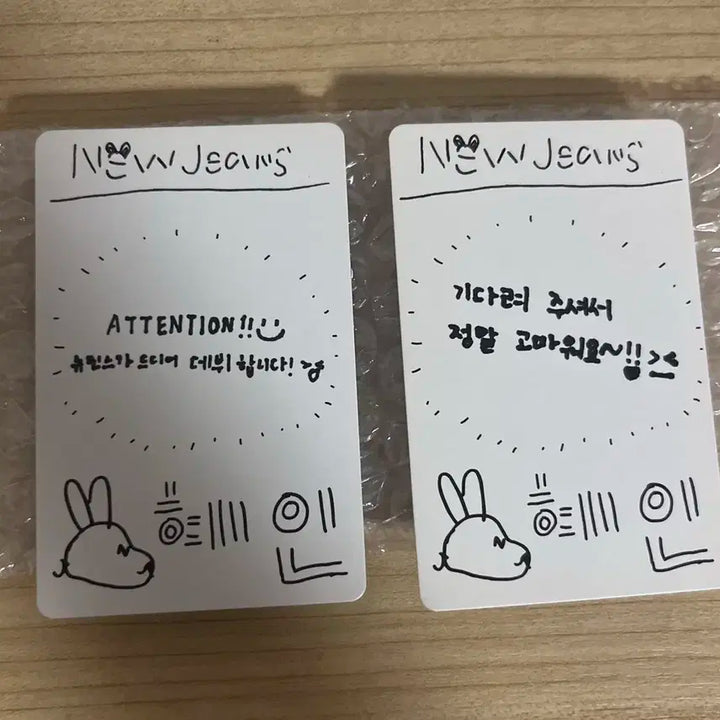 NEW Jeans
ATTENTION!!
뉴진스가 드디어 데뷔 합니다!
혜인
NEW Jeans
기다려 주셔서
정말 고마워요~!!
혜인